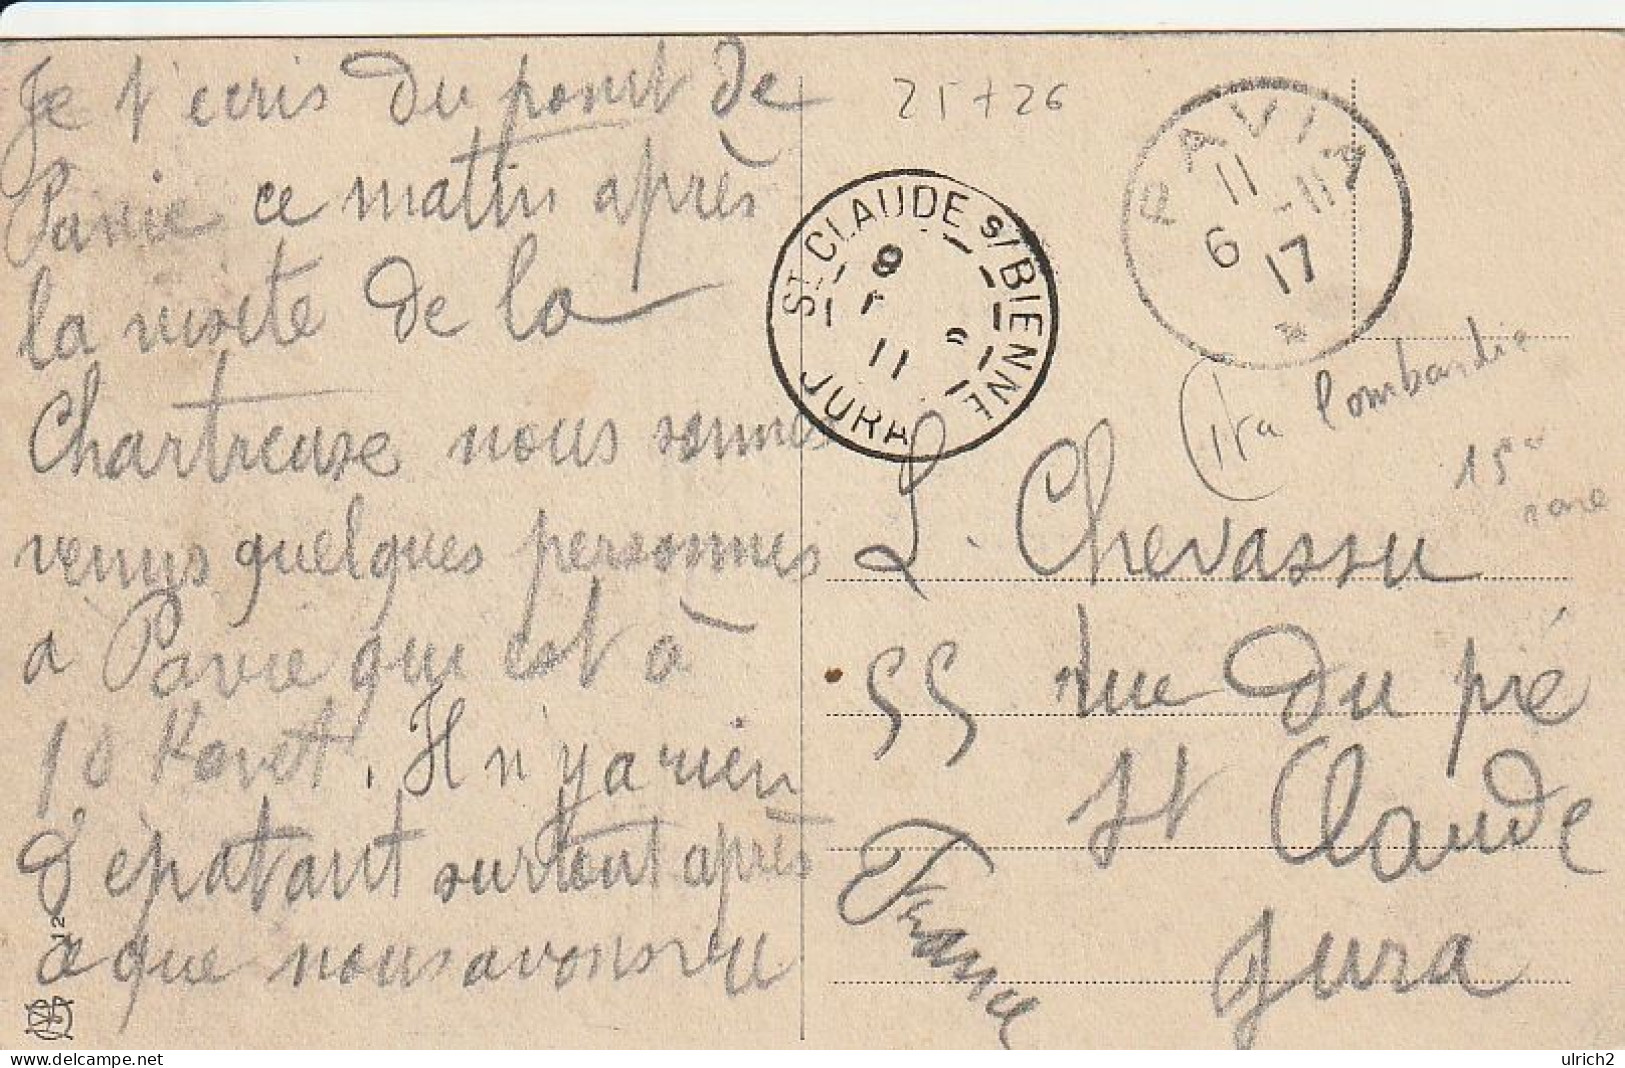 Je t'ecris du pont de
Pavie ce matin après
la visite de la
Chartreuse nous sommes
venus quelques personnes
a Pavie qui est à
10 K. Il n'y a rien
d'épatant surtout après
ce que nous avons vu
25+26
ST CLAUDE S/BIENNE
9
11
JURA
PAVIA
11
6 -11
17
*
(Ita Lombardie
15
rare
L. Chevassu
55 rue du pré
St Claude
Jura
France
ulrich2
delcampe.net